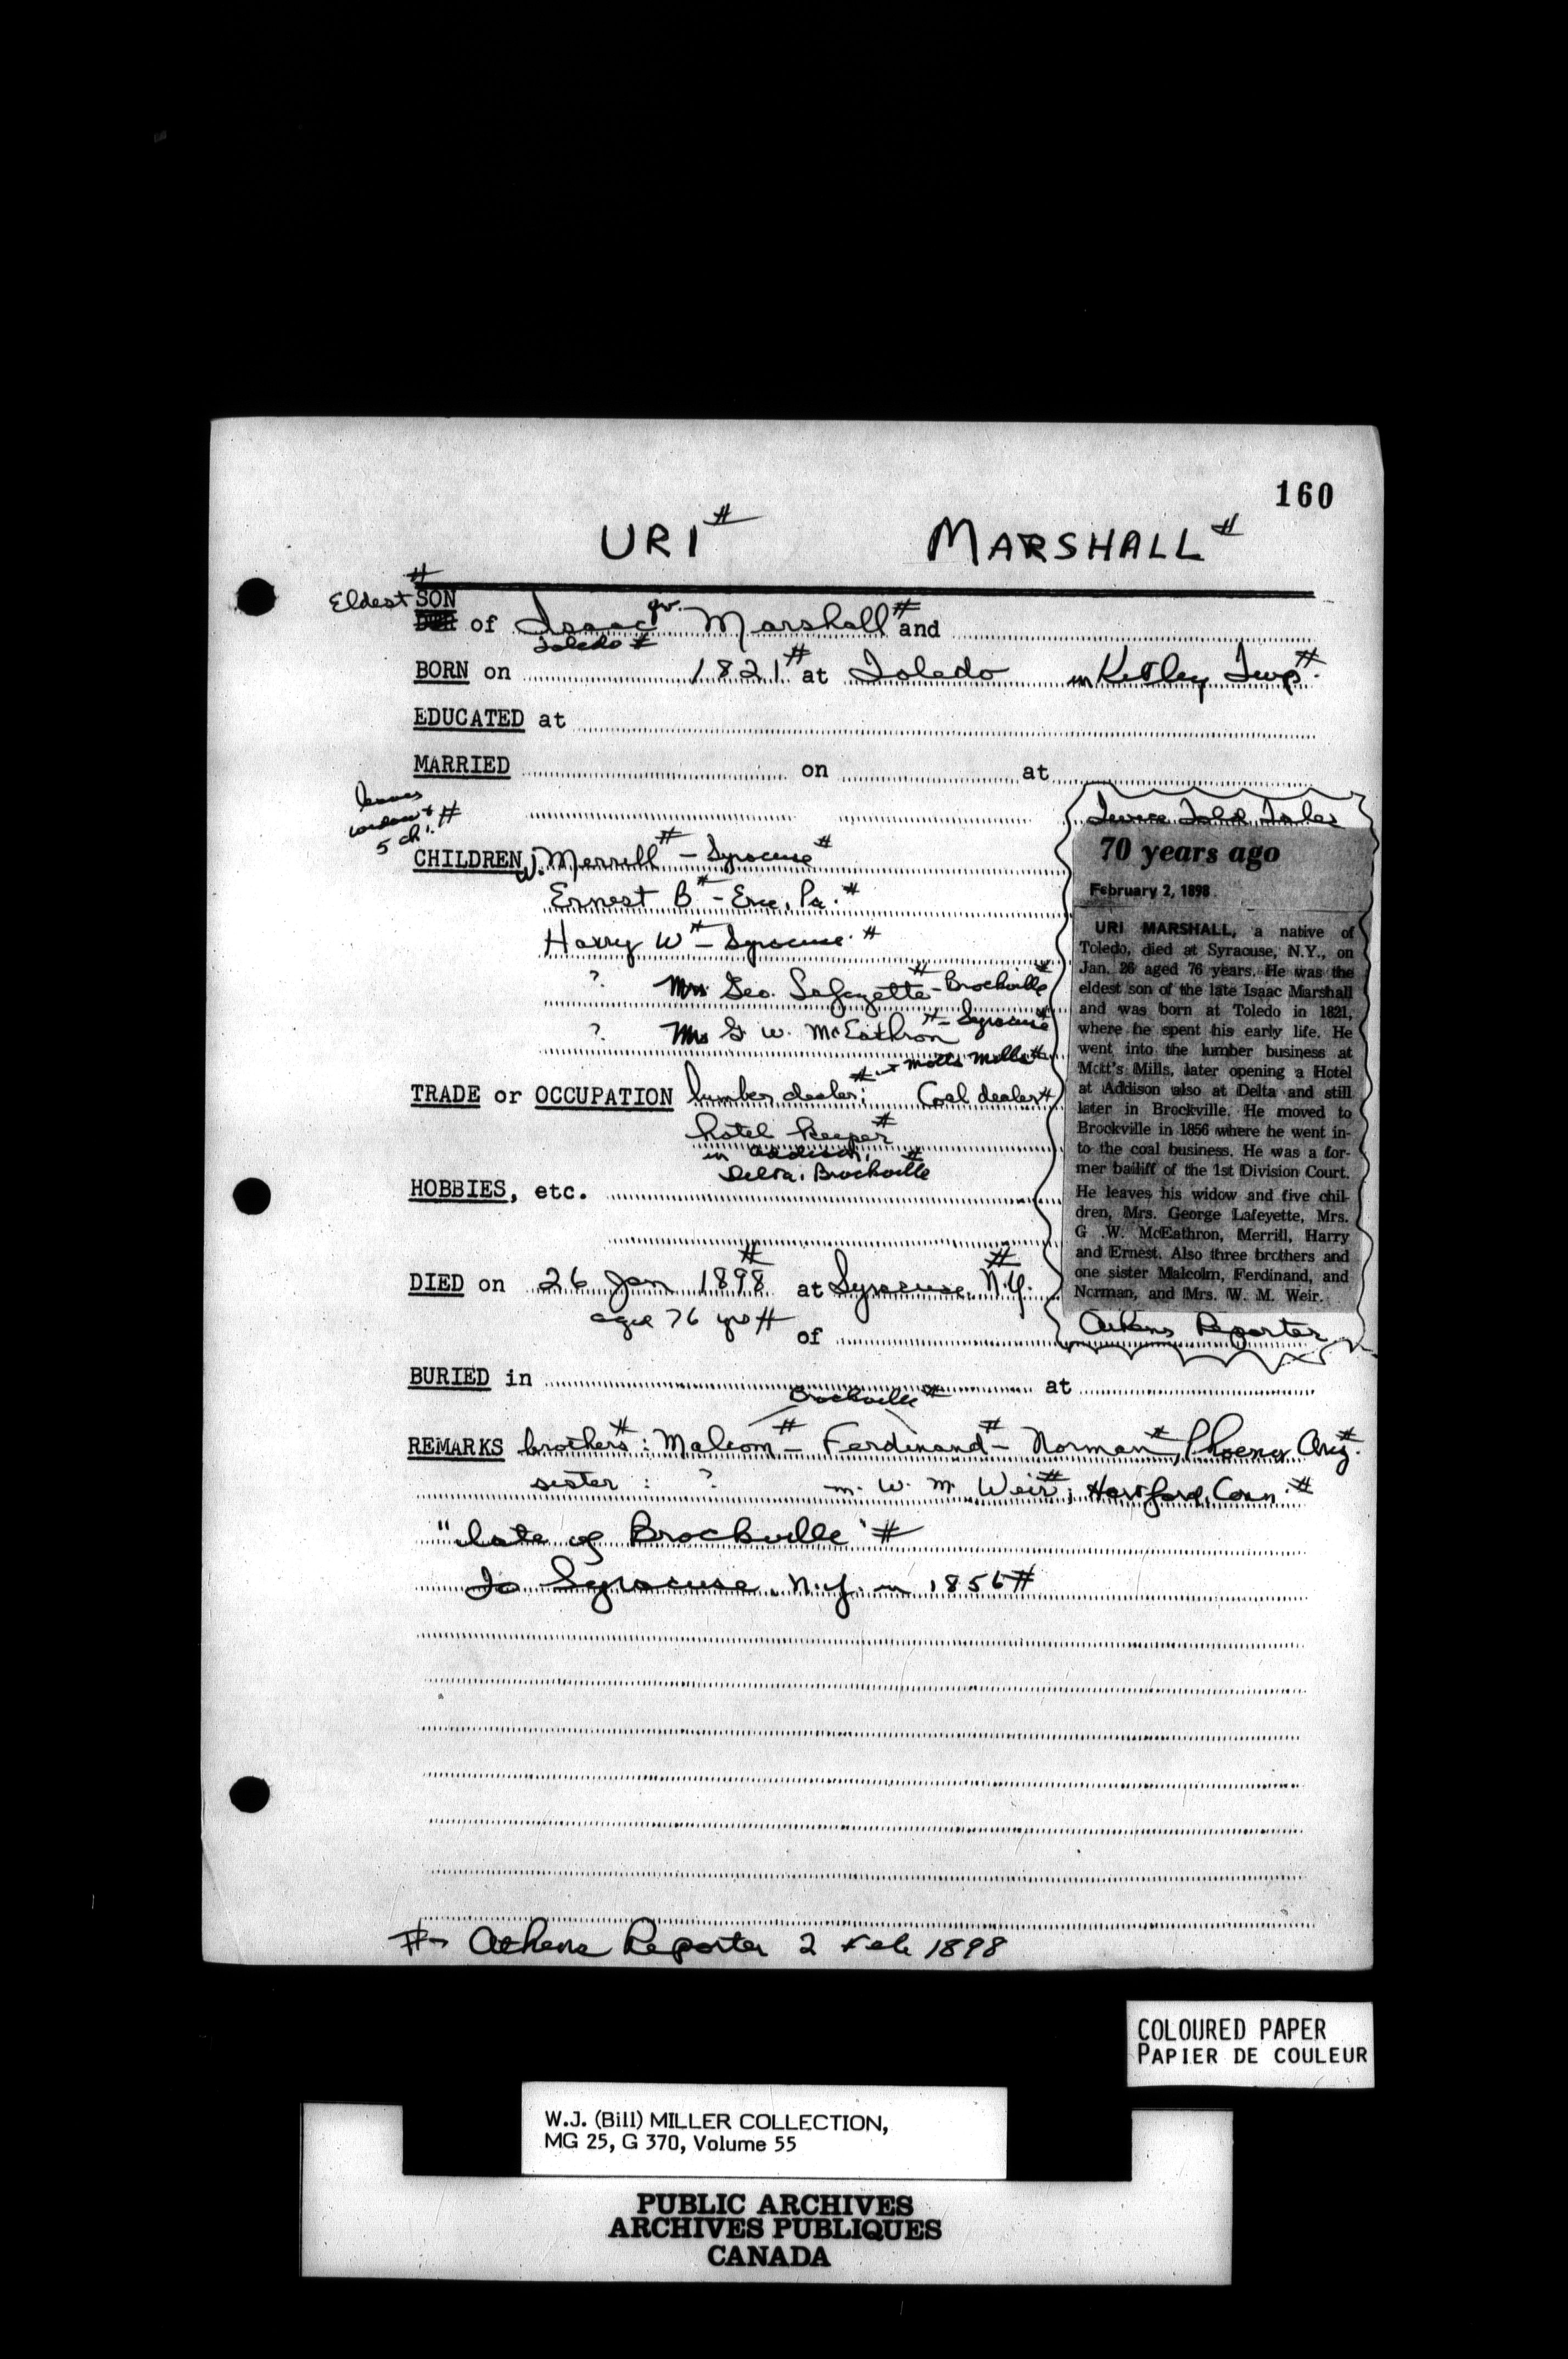 160
URI # MARSHALL #
#
Eldest SON
of Isaac qv. Marshall # and
Toledo #
BORN on 1821 # at Toledo in Kitley Twp #.
EDUCATED at
MARRIED on at
leaves
widow +
5 ch. #
CHILDREN W. Merrill # - Syracuse #
Ernest B # - Erie, Pa. #
Harry W # - Syracuse. #
? Mrs Geo. Lafayette # - Brockville #
? Mrs G. W. McEathron # - Syracuse #
TRADE or OCCUPATION lumber dealer; # at Motts Mills # Coal dealer #
hotel keeper #
in Addison,
Delta, Brockville #
HOBBIES, etc.
DIED on 26 Jan 1898 # at Syracuse N.Y. #
aged 76 yrs # of
BURIED in at
Brockville #
REMARKS brothers #: Malcom # - Ferdinand # - Norman #, Phoenix Ariz. #
sister : ? m. W. M. Weir #; Hartford, Conn. #
"late of Brockville" #
To Syracuse, N.Y. in 1856 #
#- Athens Reporter 2 Feb 1898
Twice Told Tales
70 years ago
February 2, 1898
URI MARSHALL, a native of
Toledo, died at Syracuse, N.Y., on
Jan. 26 aged 76 years. He was the
eldest son of the late Isaac Marshall
and was born at Toledo in 1821,
where he spent his early life. He
went into the lumber business at
Mott's Mills, later opening a Hotel
at Addison also at Delta and still
later in Brockville. He moved to
Brockville in 1856 where he went in-
to the coal business. He was a for-
mer bailiff of the 1st Division Court.
He leaves his widow and five chil-
dren, Mrs. George Lafeyette, Mrs.
G .W. McEathron, Merrill, Harry
and Ernest. Also three brothers and
one sister Malcolm, Ferdinand, and
Norman, and Mrs. W. M. Weir.
Athens Reporter
COLOURED PAPER
PAPIER DE COULEUR
W.J. (Bill) MILLER COLLECTION,
MG 25, G 370, Volume 55
PUBLIC ARCHIVES
ARCHIVES PUBLIQUES
CANADA